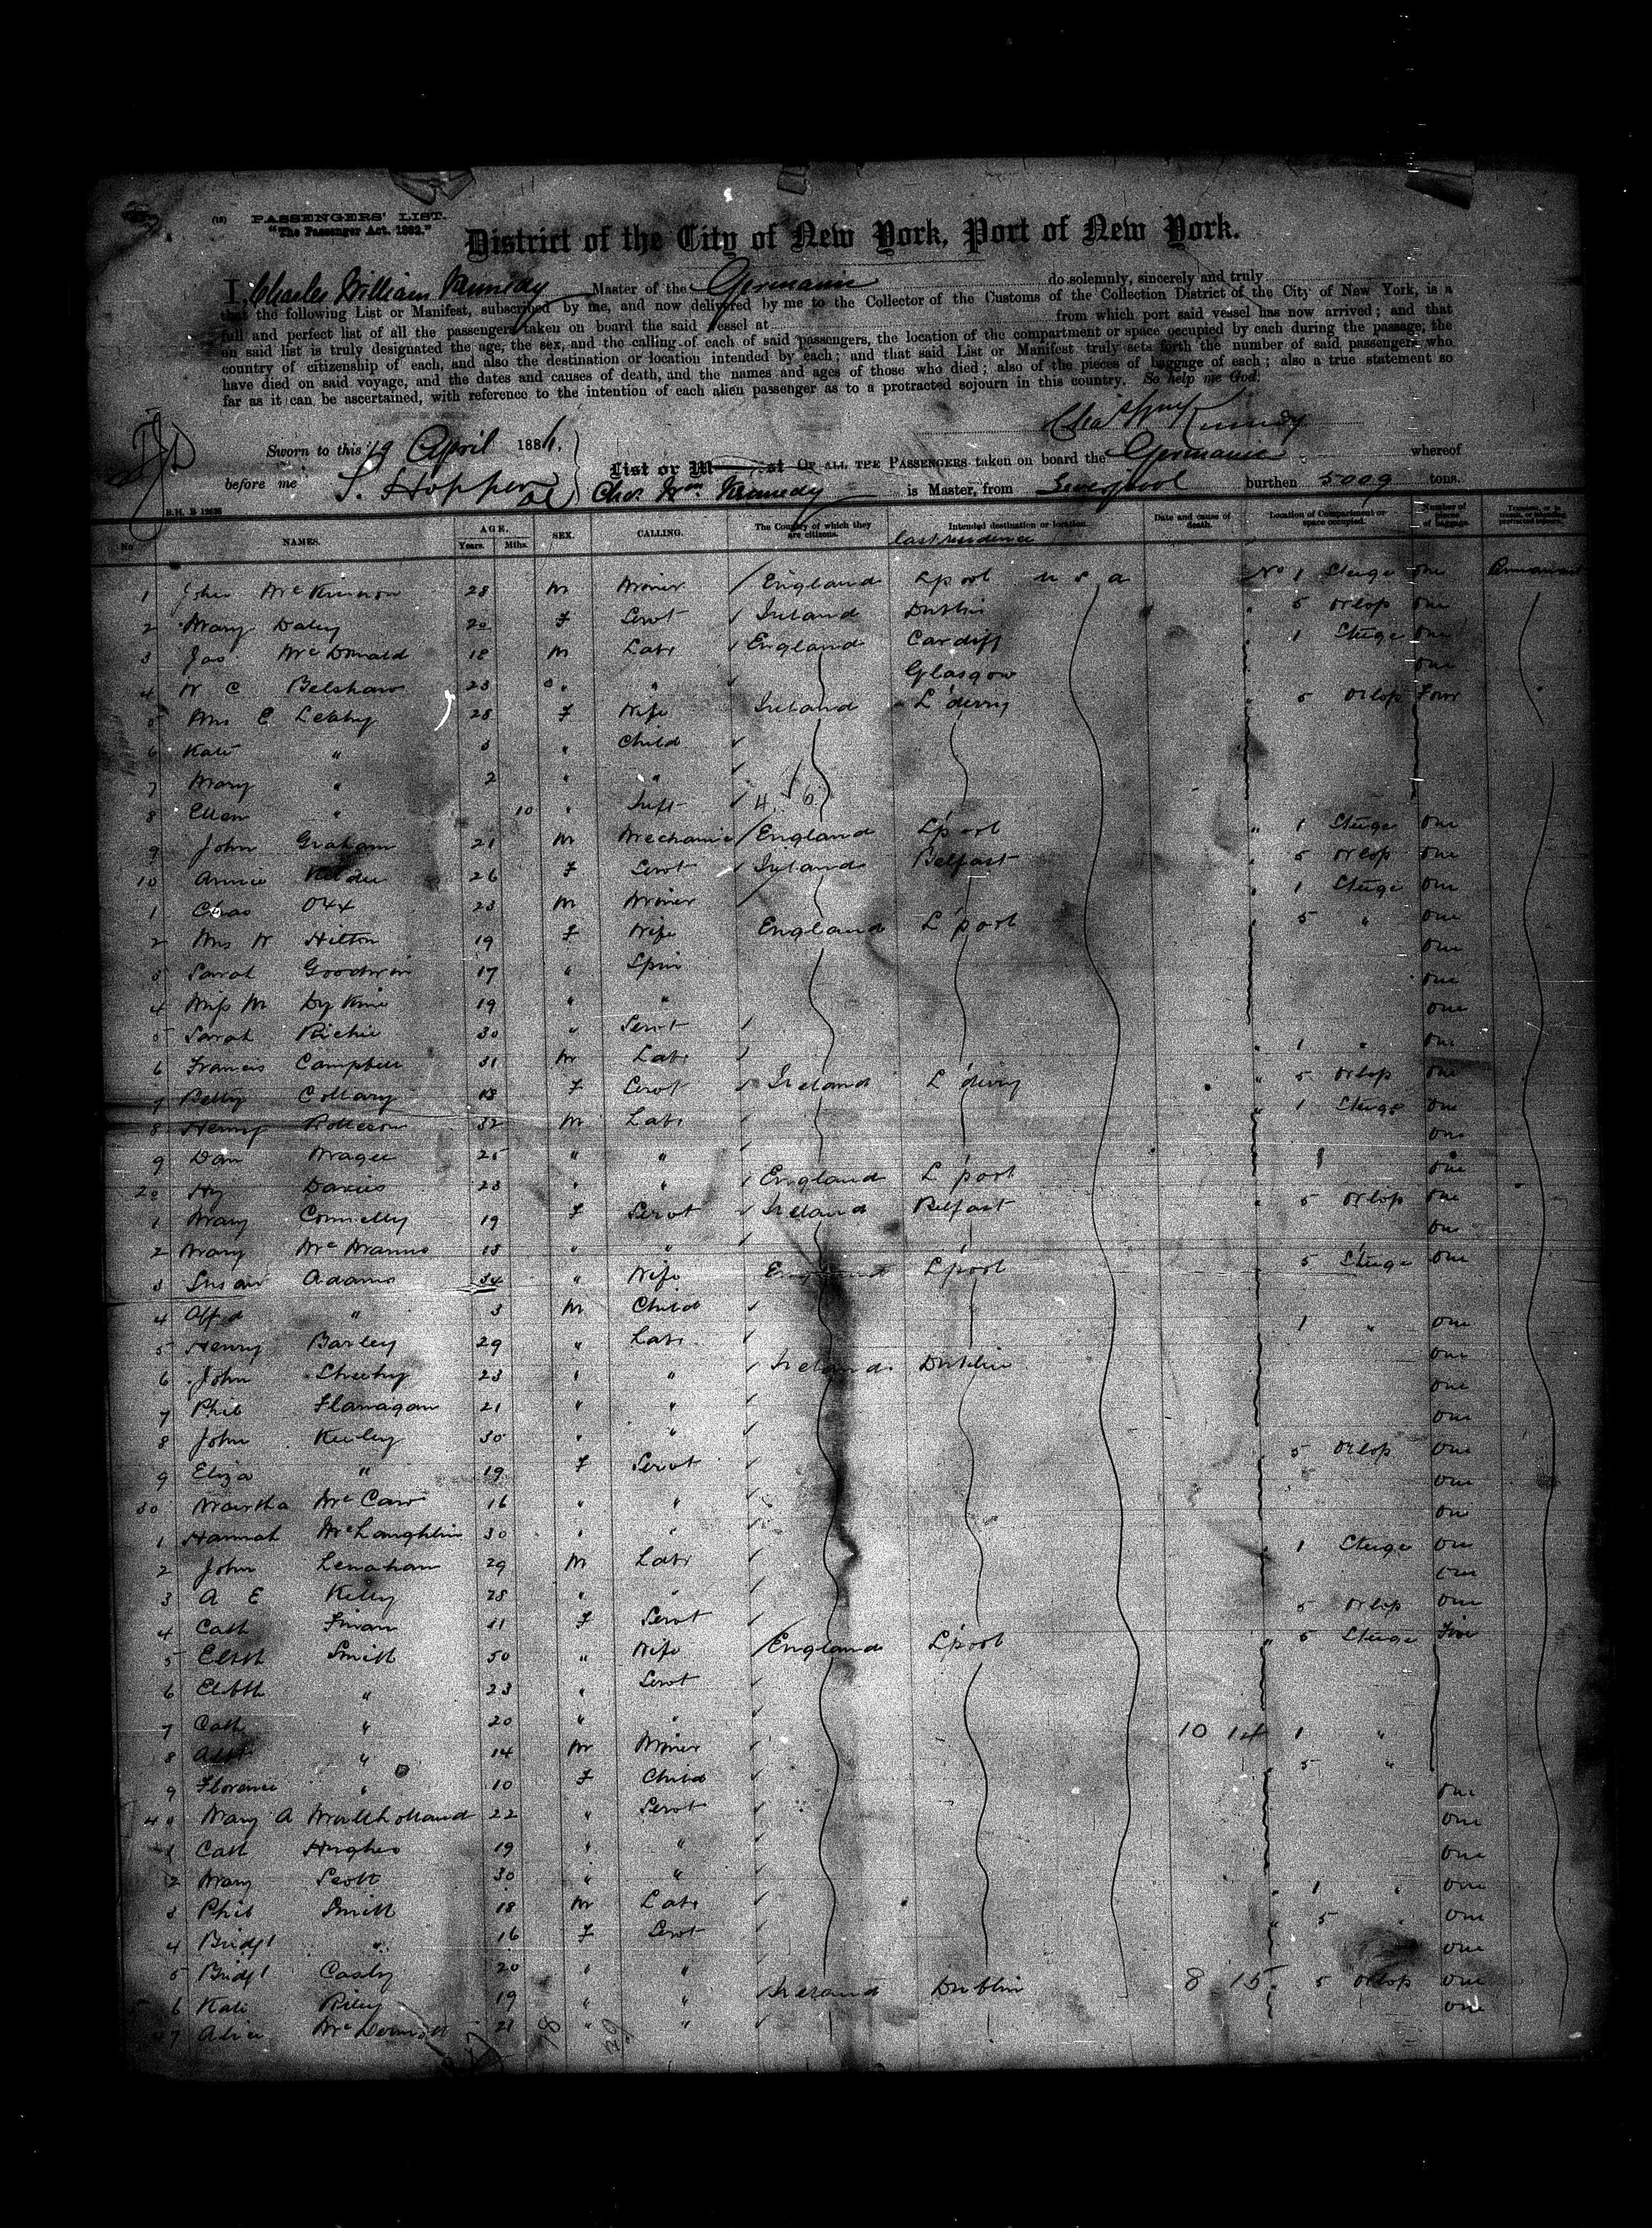 (18) PASSENGERS' LIST.
"The Passenger Act, 1882."
District of the City of New York, Port of New York.
I, Charles William Kennedy Master of the Germanic do solemnly, sincerely and truly
that the following List or Manifest, subscribed by me, and now delivered by me to the Collector of the Customs of the Collection District of the City of New York, is a
full and perfect list of all the passengers taken on board the said vessel at from which port said vessel has now arrived; and that
on said list is truly designated the age, the sex, and the calling of each of said passengers, the location of the compartment or space occupied by each during the passage, the
country of citizenship of each, and also the destination or location intended by each; and that said List or Manifest truly sets forth the number of said passengers who
have died on said voyage, and the dates and causes of death, and the names and ages of those who died; also of the pieces of baggage of each; also a true statement so
far as it can be ascertained, with reference to the intention of each alien passenger as to a protracted sojourn in this country. So help me God.
Chas Wm Kennedy
Sworn to this 19 April 188
before me S. Hopper
List or OF ALL THE PASSENGERS taken on board the Germanic whereof
Chas. Wm. Kennedy is Master, from Liverpool burthen 5009 tons.
No NAMES. AGE. Years. Mths. SEX. CALLING. The Country of which they are citizens. Intended destination or location. last residence Date and cause of death. Location of Compartment or space occupied. Number of pieces of baggage.
1 John McKinnon 28 M Miner / England L'pool U S A No 1 Steuge One Permanent
2 Mary Daley 20 F Servt Ireland Dublin " 5 Orlop One
3 Jas McDonald 18 M Labr England Cardiff 1 Steuge One
4 W C Belshaw 23 " " Glasgow One
5 Mrs E 28 F Wife Ireland L'derry " 5 Orlop Four
6 Kate " 3 " Child
7 Mary " 2 " "
8 Ellen " 10 " Inft 4. 6
9 John Graham 21 M Mechanic / England L'pool " 1 Steuge One
10 Annie 26 F Servt Ireland Belfast 5 Orlop One
1 Chas 23 M Miner 1 Steuge One
2 Mrs W Hilton 19 F Wife England L'pool 5 " One
3 Sarah Goodwin 17 " Spin One
4 Miss M 19 " " One
5 Sarah Richie 30 " Servt One
6 Francis Campbell 31 M Labr 1 " One
7 Betty 18 F Servt Ireland L'derry " 5 Orlop One
8 Henry 32 M Labr 1 Steuge One
9 Dan Magee 25 " " One
20 Hy Davies 23 " " England L'pool One
1 Mary Connelly 19 F Servt Ireland Belfast 5 Orlop One
2 Mary McManus 18 " " One
3 Susan Adams 34 " Wife England L'pool 5 Steuge One
4 Alfd " 3 M Child
5 Henry Barley 29 " Labr 1 " One
6 John Sheehy 23 " " Ireland Dublin One
7 Phil Flanagan 21 " " One
8 John 30 " " One
9 Eliza " 19 F Servt 5 Orlop One
30 Martha McCaw 16 " " One
1 Hannah McLaughlin 30 " " One
2 John Lenahan 29 M Labr 1 Steuge One
3 A E Kelly 28 " " One
4 Cath 31 F Servt 5 Orlop One
5 Elbth Smith 50 " Wife / England L'pool " 5 Steuge Five
6 Elbth " 23 " Servt
7 Cath " 20 " "
8 " 14 M Miner 10 14 1 "
9 Florence " 10 F Child 5 "
40 Mary A Mullholland 22 " Servt One
1 Cath Hughes 19 " " One
2 Mary Scott 30 " " One
3 Phil Smith 18 M Labr 1 " One
4 Bridgt " 16 F Servt 5 " One
5 Bridgt 20 " " One
6 Kate Riley 19 " " Ireland Dublin 8 15 5 Orlop One
47 Alice McDermott 21 " " One